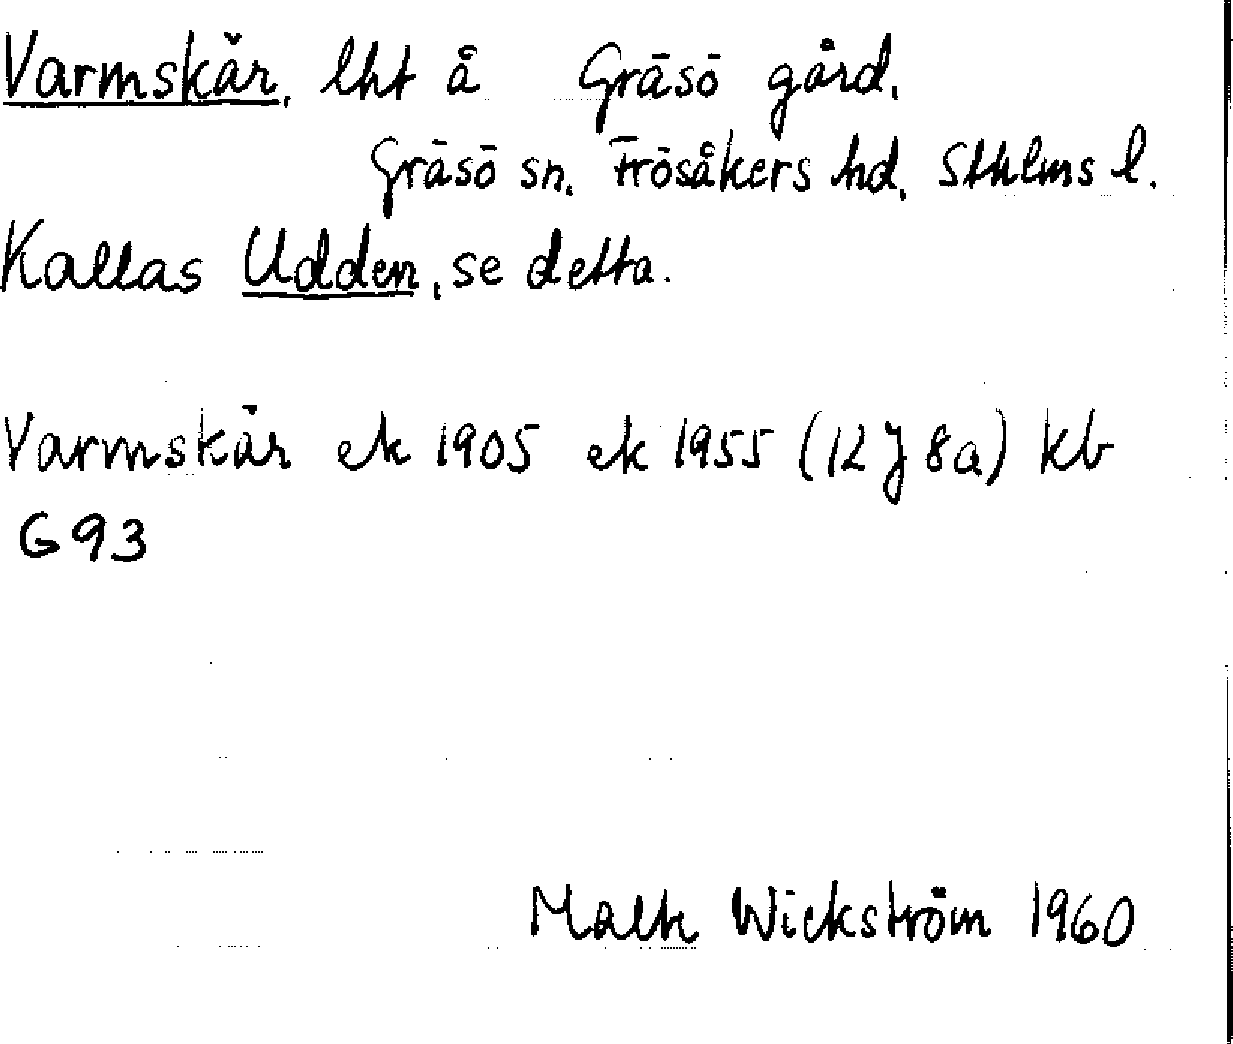 Varmskär, lht å Gräsö gård,
Gräsö sn, Frösåkers hd, Sthlms l.
Kallas Udden, se detta.
Varmskär ek 1905 ek 1955 (12 J 8a) kb
G93
Malte Wickström 1960